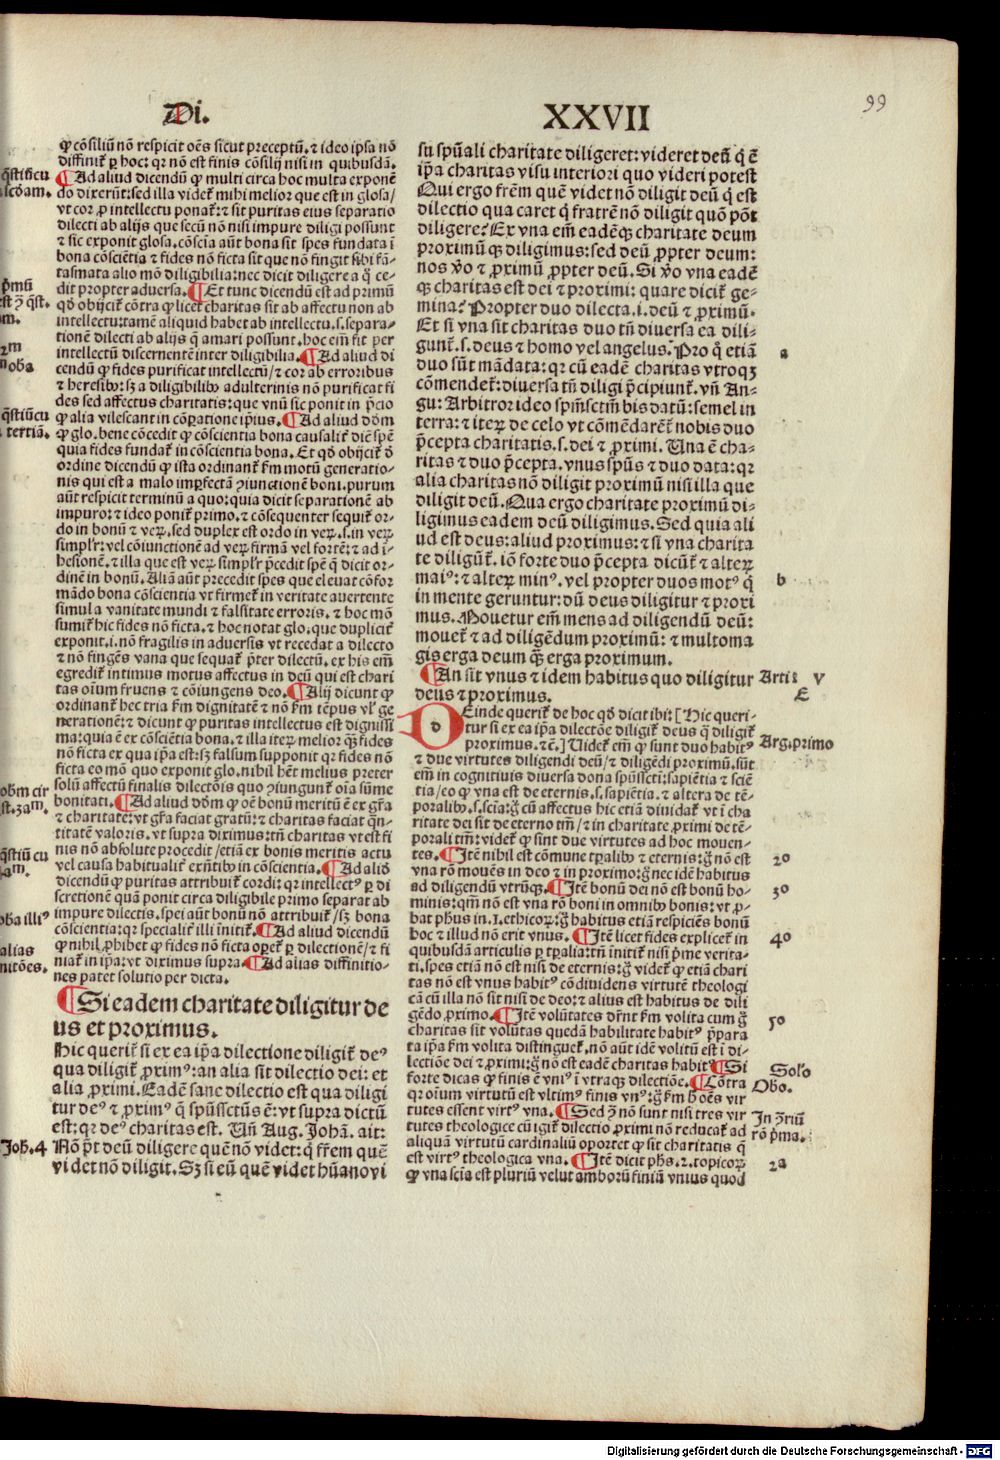 99
Di. XXVII
ꝙ cõsiliũ nõ respicit oẽs sicut preceptũ. ⁊ ideo ipsa nõ
diffinit̃ ꝑ hoc: qꝛ nõ est finis cõsilij nisi in quibusdã.
¶ Ad aliud dicendũ ꝙ multi circa hoc multa exponẽ
do dixerũt: sed illa videt̃ mihi melior que est in glosa/
vt cor ꝓ intellectu ponat̃: ⁊ sit puritas eius separatio
dilecti ab alijs que secũ nõ nisi impure diligi possunt
⁊ sic exponit glosa. cõscia aũt bona sit spes fundata ĩ
bona cõsciẽtia ⁊ fides nõ ficta sit que nõ fingit sibi fã-
tasmata alio mõ diligibilia: nec dicit diligere a q̃ ce-
dit propter aduersa. ¶ Et tunc dicendũ est ad primũ
qđ obijcit̃ cõtra ꝙ licet charitas sit ab affectu non ab
intellectu: tamẽ aliquid habet ab intellectu. s. separa-
tionẽ dilecti ab alijs q̃ amari possunt. hoc em̃ fit per
intellectũ discernentẽ inter diligibilia. ¶ Ad aliud di
cendũ ꝙ fides purificat intellectũ/ ⁊ cor ab erroribus
⁊ heresibꝰ: sꝫ a diligibilibꝰ adulterinis nõ purificat fi
des sed affectus charitatis: que vnũ sic ponit in p̃cio
ꝙ alia vilescant in cõparatione ipsius. ¶ Ad aliud dõm
ꝙ glo. bene cõcedit ꝙ cõscientia bona causalit̃ dic̃ spẽ
quia fides fundat̃ in cõscientia bona. Et qđ obijcit̃ đ
ordine dicendũ ꝙ ista ordinant̃ ẜm motũ generatio-
nis qui est a malo imperfectã ↄiunctionẽ boni. purum
aũt respicit terminũ a quo: quia dicit separationẽ ab
impuro: ⁊ ideo ponit̃ primo. ⁊ cõsequenter sequit̃ or-
do in bonũ ⁊ veꝝ. sed duplex est ordo in veꝝ. s. in veꝝ
simplr̃: vel cõiunctionẽ ad veꝝ firmã vel fortẽ: ⁊ ad ĩ-
hesionẽ. ⁊ illa que est veꝝ simplr̃ p̃cedit spẽ q̃ dicit or-
dinẽ in bonũ. Aliã aũt precedit spes que eleuat cõfor
mãdo bona cõscientia vt firmet̃ in veritate auertente
simul a vanitate mundi ⁊ falsitate erroris. ⁊ hoc mõ
sumit̃ hic fides nõ ficta. ⁊ hoc notat glo. que duplicit̃
exponit. i. nõ fragilis in aduersis vt recedat a dilecto
⁊ nõ fingẽs vana que sequat̃ p̃ter dilectũ. ex his em̃
egredit̃ intimus motus affectus in deũ qui est chari
tas oĩum fruens ⁊ cõiungens deo. ¶ Alij dicunt ꝙ
ordinant̃ hec tria ẜm dignitatẽ ⁊ nõ ẜm tẽpus vl̃ ge
nerationẽ: ⁊ dicunt ꝙ puritas intellectus est dignissi
ma: quia ẽ ex cõsciẽtia bona. ⁊ illa iteꝝ melior q̃ꝫ fides
nõ ficta ex qua ipa est: sꝫ falsum supponit qꝛ fides nõ
ficta eo mõ quo exponit glo. nihil hẽt melius preter
solũ affectũ finalis dilectiõis quo ↄiungunt̃ oĩa summe
bonitati. ¶ Ad aliud dõm ꝙ oẽ bonũ meritũ ẽ ex gr̃a
⁊ charitate: vt gr̃a faciat gratũ: ⁊ charitas faciat q̃n-
titatẽ valoris. vt supra diximus: tñ charitas vt est fi
nis nõ absolute procedit/ etiã ex bonis meritis actu
vel causa habitualit̃ exñtibꝰ in cõscientia. ¶ Ad aliđ
dicendũ ꝙ puritas attribuit̃ cordi: qꝛ intellectꝰ ꝑ di
scretionẽ quã ponit circa diligibile primo separat ab
impure dilectis. spei aũt bonũ nõ attribuit̃/ sꝫ bona
cõscientia: qꝛ specialit̃ illi innitit̃. ¶ Ad aliud dicendũ
ꝙ nihil ꝓhibet ꝙ fides nõ ficta operet̃ ꝑ dilectionẽ/ ⁊ fi
niat̃ in ipa: vt diximus supra. ¶ Ad alias diffinitio-
nes patet solutio per dicta.
¶ Si eadem charitate diligitur de
us et proximus.
Hic querit̃ si ex ea ip̃a dilectione diligit̃ deꝰ
qua diligit̃ ꝓximꝰ: an alia sit dilectio dei: et
alia ꝓximi. Eadẽ sane dilectio est qua diligi
tur deꝰ ⁊ ꝓximꝰ q̃ spũssctũs ẽ: vt supra dictũ
est: qꝛ deꝰ charitas est. Vñ Aug. Johã. ait:
Nõ p̃t deũ diligere quẽ nõ videt: q̃ fr̃em quẽ
videt nõ diligit. Sꝫ si eũ quẽ videt hũano vi
q̃stiũcu
scđam.
p̃mũ
est ↄ̃ q̃st.
m.
2m
noba
q̃stiũcu
tertiã.
obm cir
st. 3am.
q̃stiũ cu
am.
oba illiꝰ
alias
nitões.
Joh. 4
su spũali charitate diligeret: videret deũ q̃ ẽ
ip̃a charitas visu interiori quo videri potest
Qui ergo fr̃em quẽ videt nõ diligit deũ q̃ est
dilectio qua caret q̃ fratrẽ nõ diligit quõ põt
diligere? Ex vna em̃ eadẽqꝫ charitate deum
proximũqꝫ diligimus: sed deũ ꝓpter deum:
nos ṽo ⁊ ꝓximũ ꝓpter deũ. Si ṽo vna eadẽ
qꝫ charitas est dei ⁊ proximi: quare dicit̃ ge-
mina? Propter duo dilecta. i. deũ ⁊ ꝓximũ.
Et si vna sit charitas duo tñ diuersa ea dili-
gunt̃. s. deus ⁊ homo vel angelus. Pro q̃ etiã
duo sũt mãdata: qꝛ cũ eadẽ charitas vtroqꝫ
cõmendet̃: diuersa tñ diligi p̃cipiunt̃. vñ Au-
gu: Arbitror ideo spm̃sctm̃ bis datũ: semel in
terra: ⁊ iteꝝ de celo vt cõmẽdarẽt̃ nobis duo
p̃cepta charitatis. s. dei ⁊ ꝓximi. Una ẽ cha-
ritas ⁊ duo p̃cepta. vnus spũs ⁊ duo data: qꝛ
alia charitas nõ diligit proximũ nisi illa que
diligit deũ. Qua ergo charitate proximũ di-
ligimus eadem deũ diligimus. Sed quia ali
ud est deus: aliud proximus: ⁊ si vna charita
te diligũt̃. iõ forte duo p̃cepta dicũt̃ ⁊ alteꝝ
maiꝰ: ⁊ alteꝝ minꝰ. vel propter duos motꝰ q̃
in mente geruntur: dũ deus diligitur ⁊ proxi
mus. Mouetur em̃ mens ad diligendũ deũ:
mouet̃ ⁊ ad diligẽdum proximũ: ⁊ multoma
gis erga deum q̃ꝫ erga proximum.
¶ An sit vnus ⁊ idem habitus quo diligitur
deus ⁊ proximus.
DEinde querit̃ de hoc qđ dicit ibi: [Hic queri-
tur si ex ea ip̃a dilectiõe diligit̃ deus q̃ diligit̃
proximus. ⁊c̃.] Videt̃ em̃ ꝙ sunt duo habitꝰ
⁊ due virtutes diligendi deũ/ ⁊ diligẽdi proximũ. sũt
em̃ in cognitiuis diuersa dona spũssctĩ: sapiẽtia ⁊ sciẽ
tia/ eo ꝙ vna est de eternis. s. sapiẽtia. ⁊ altera de tẽ-
poralibꝰ. s. scĩa: g̃ cũ affectus hic etiã diuidat̃ vt ĩ cha
ritate dei sit de eterno tm̃/ ⁊ in charitate ꝓximi de tẽ-
porali tm̃: videt̃ ꝙ sint due virtutes ad hoc mouen-
tes. ¶ Itẽ nihil est cõmune tꝑalibꝰ ⁊ eternis: g̃ nõ est
vna rõ mouẽs in deo ⁊ in proximo: g̃ nec idẽ habitus
ad diligendũ vtrũqꝫ. ¶ Itẽ bonũ dei nõ est bonũ ho-
minis: qm̃ nõ est vna rõ boni in omnibꝰ bonis: vt ꝓ-
bat ph̃us in .1. ethicoꝝ: g̃ habitus etiã respiciẽs bonũ
hoc ⁊ illud nõ erit vnus. ¶ Itẽ licet fides explicet̃ in
quibusdã articulis ꝑ tꝑalia: tñ initit̃ nisi p̃me verita-
ti. spes etiã nõ est nisi de eternis: g̃ videt̃ ꝙ etiã chari
tas nõ est vnus habitꝰ cõdiuidens virtutẽ theologi
cã cũ illa nõ sit nisi de deo: ⁊ alius est habitus de dili
gẽdo ꝓximo. ¶ Itẽ volũtates dr̃nt ẜm volita cum g̃
charitas sit volũtas quedã habilitate habitꝰ p̃para
ta ip̃a ẜm volita distinguet̃. nõ aũt idẽ volitũ est ĩ di-
lectiõe dei ⁊ ꝓximi: g̃ nõ est eadẽ charitas habitꝰ ¶ Si
forte dicas ꝙ finis ẽ vniꝰ ĩ vtraqꝫ dilectiõe. ¶ Cõtra
qꝛ oĩum virtutũ est vltimꝰ finis vnꝰ: g̃ ẜm hoc oẽs vir
tutes essent virtꝰ vna. ¶ Sed ↄ̃ nõ sunt nisi tres vir
tutes theologice cũ igit̃ dilectio ꝓximi nõ reducat̃ ad
aliquã virtutũ cardinaliũ oportet ꝙ sit charitatis q̃
est virtꝰ theologica vna. ¶ Itẽ dicit ph̃s .2. topicoꝝ
ꝙ vna scĩa est pluriũ velut amborũ finiũ vnius quod
a
b
Arti: V
E
Arg. primo
2o
3o
4o
5o
Solo
Obo.
In ↄ̃riũ
rõ p̃ma.
2a
Digitalisierung gefördert durch die Deutsche Forschungsgemeinschaft - DFG